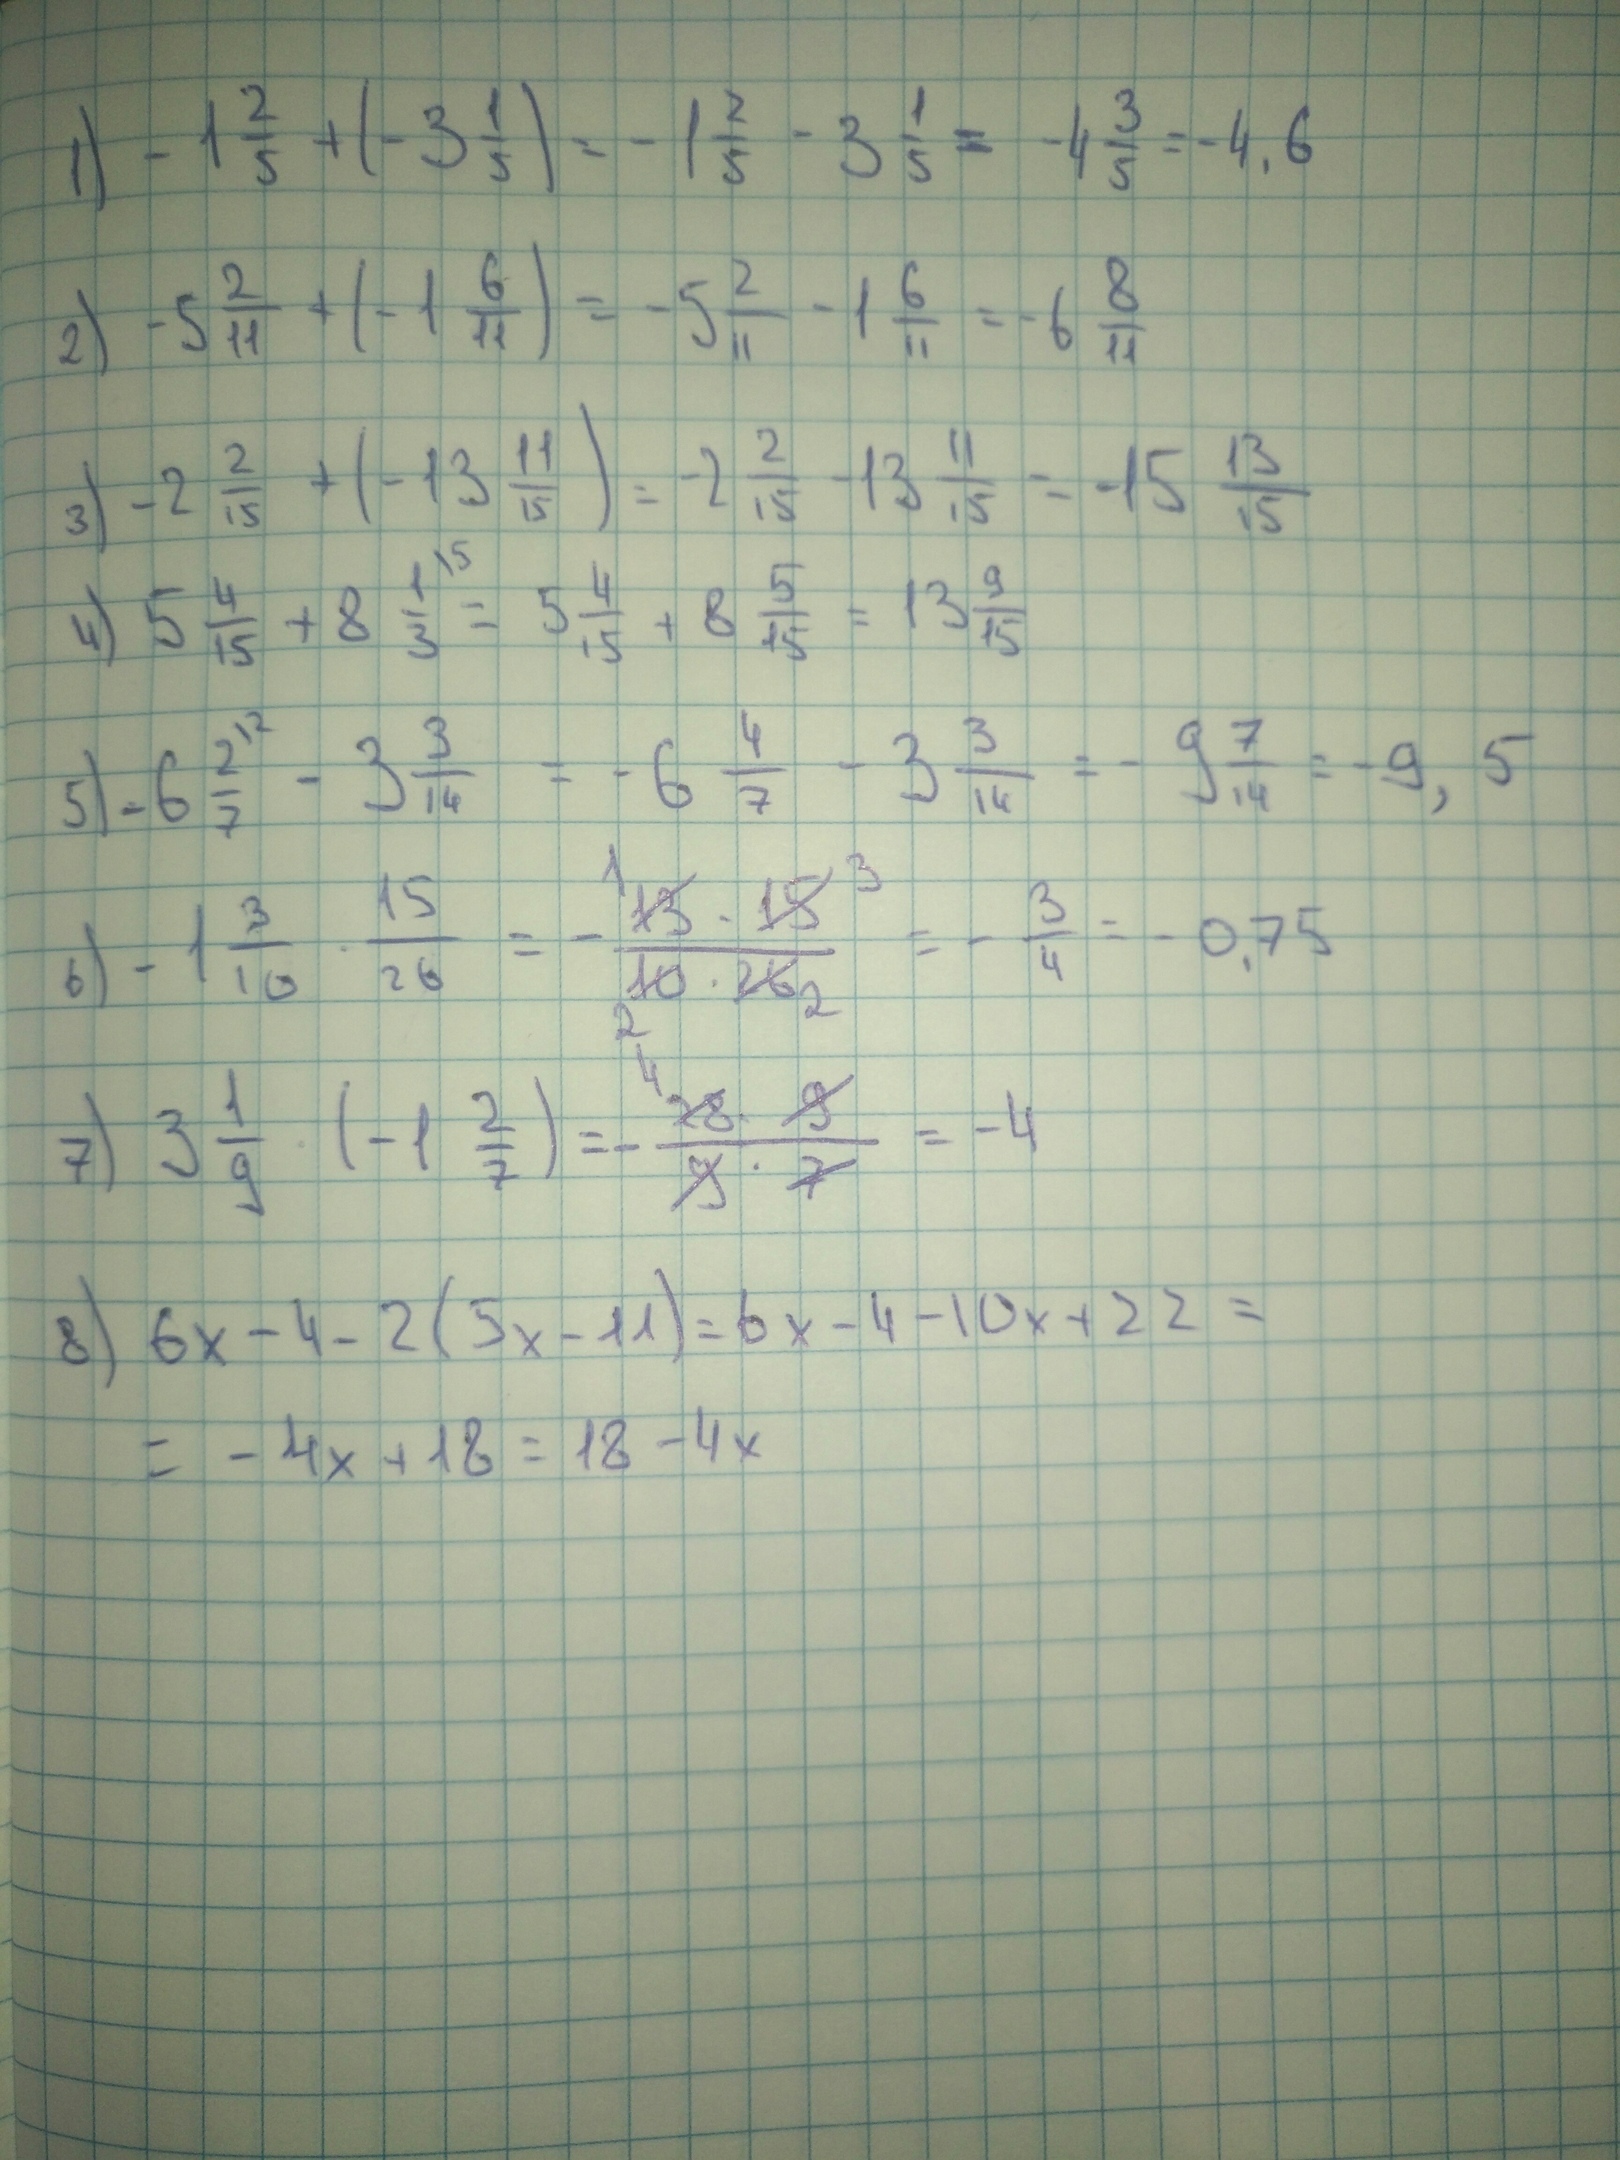 1) -1 2/5 + (-3 1/5) = -1 2/5 - 3 1/5 = -4 3/5 = -4,6
2) -5 2/11 + (-1 6/11) = -5 2/11 - 1 6/11 = -6 8/11
3) -2 2/15 + (-13 11/15) = -2 2/15 - 13 11/15 = -15 13/15
4) 5 4/15 + 8 1/3 \5 = 5 4/15 + 8 5/15 = 13 9/15
5) -6 2/7 \2 - 3 3/14 = -6 4/7 - 3 3/14 = -9 7/14 = -9,5
6) -1 3/10 · 15/26 = - 13 · 15/10 · 26 = - 3/4 = -0,75
7) 3 1/9 · (-1 2/7) = - 28 · 9/9 · 7 = -4
8) 6x - 4 - 2(5x - 11) = 6x - 4 - 10x + 22 =
= -4x + 18 = 18 - 4x